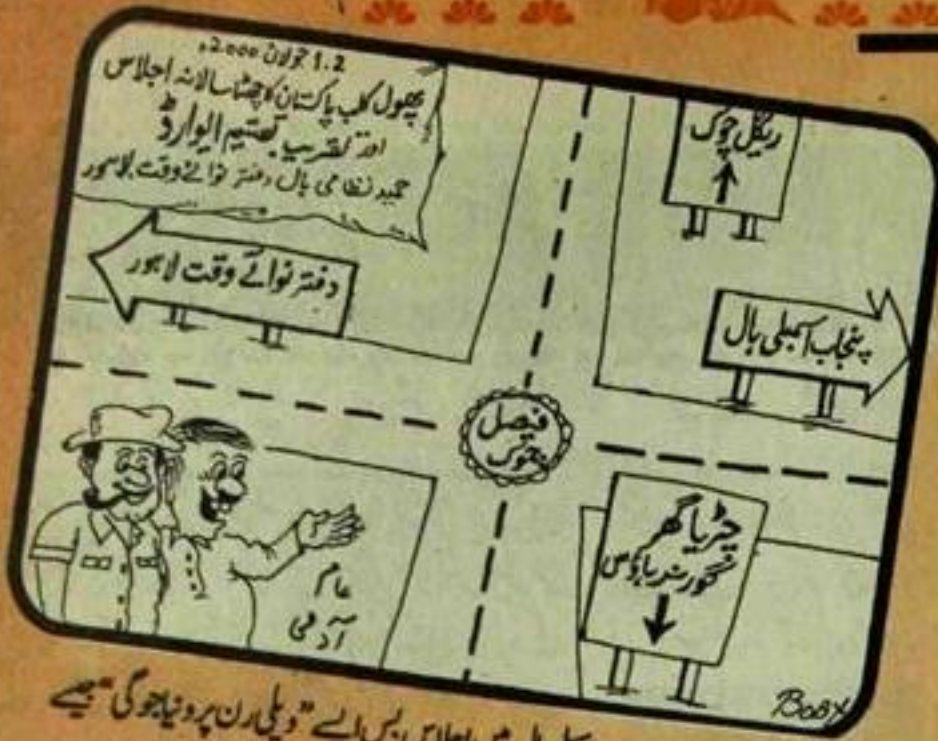 1.2 جولائی 2000ء
پھول کلب پاکستان کا چھٹا سالانہ اجلاس
اور تقریب تقسیم ایوارڈ
حمید نظامی ہال دفتر نوائے وقت لاہور
ریگل چوک
دفتر نوائے وقت لاہور
پنجاب اسمبلی ہال
فیصل چوک
چڑیا گھر
گورنر ہاؤس
عام
آدمی
BOBY
میں اجلاس بس اسے "ویلی رن پرونیا جوگی" جیسے